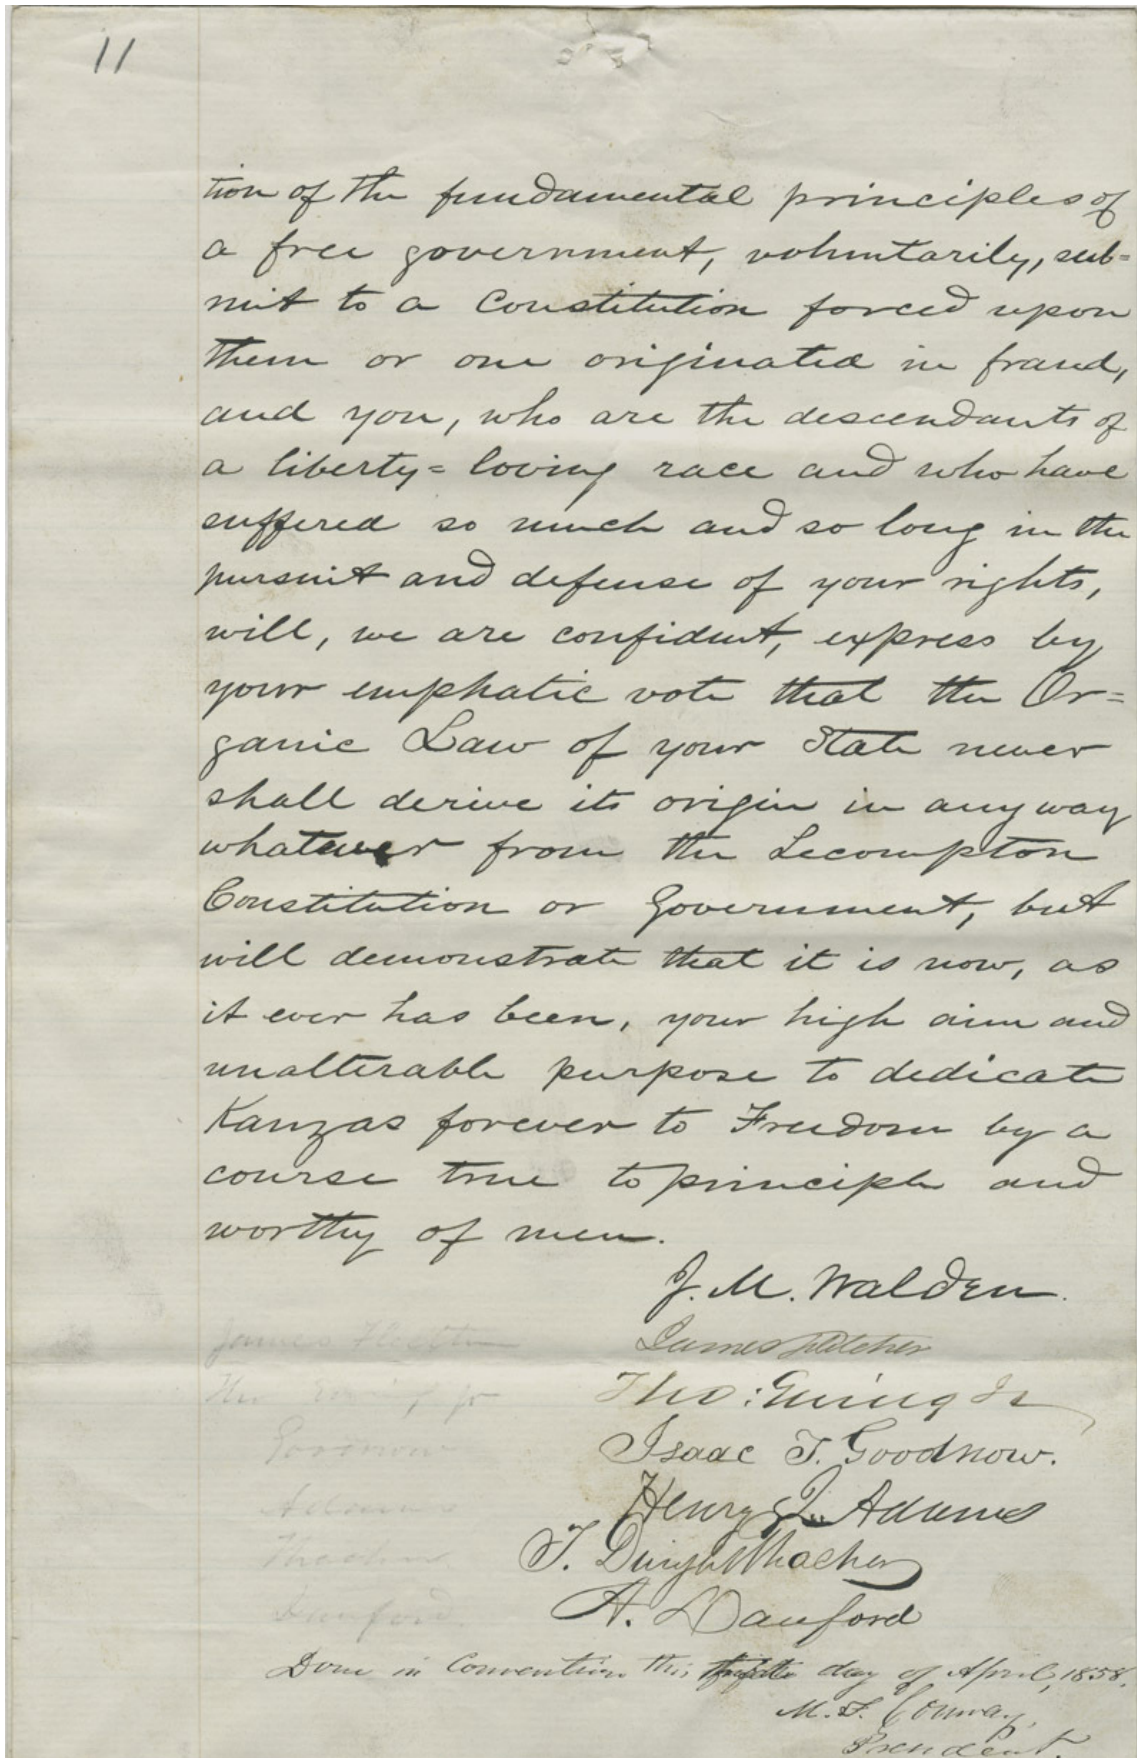 11
tion of the fundamental principles of
a free government, voluntarily, sub=
mit to a Constitution forced upon
them or one originated in fraud,
and you, who are the descendants of
a liberty=loving race and who have
suffered so much and so long in the
pursuit and defense of your rights,
will, we are confident, express by
your emphatic vote that the Or=
ganic Law of your State never
shall derive its origin in any way
whatever from the Lecompton
Constitution or Government, but
will demonstrate that it is now, as
it ever has been, your high aim and
unalterable purpose to dedicate
Kanzas forever to Freedom by a
course true to principle and
worthy of men.
J. M. Walden.
James Fletcher
Tho: Ewing Jr
Isaac T. Goodnow.
Henry J. Adams
T. Dwight Thacher
A. Danford
Goodnow
Adams
Thacher
Danford
Done in Convention this day of April, 1858.
M. F. Conway,
President.